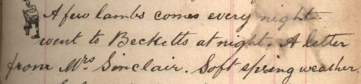 A few lambs comes every night
went to Becketts at night. A letter
from Mrs Sinclair. Soft spring weather